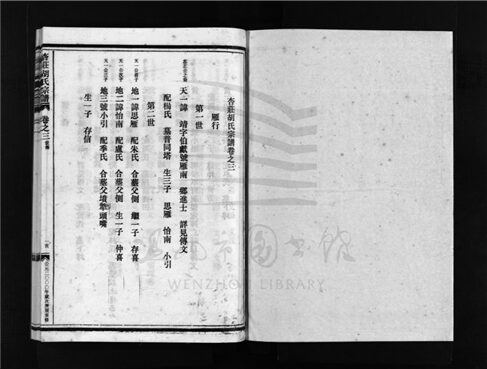 杏莊胡氏宗譜卷之三
雁行
第一世
天一諱 靖字伯獻號雁南 鄉進士 詳見傳文
配楊氏 墓普同塔 生三子 思雁 怡南 小引
第二世
地一諱思雁 配朱氏 合墓父側 繼一子 存喜
地二諱怡南 配盧氏 合墓父側 生一子 仲喜
地三號小引 配季氏 合墓父墳 頭嘴
生一子 存信
杏莊胡氏宗譜 卷之三
溫州市圖書館
WENZHOU LIBRARY